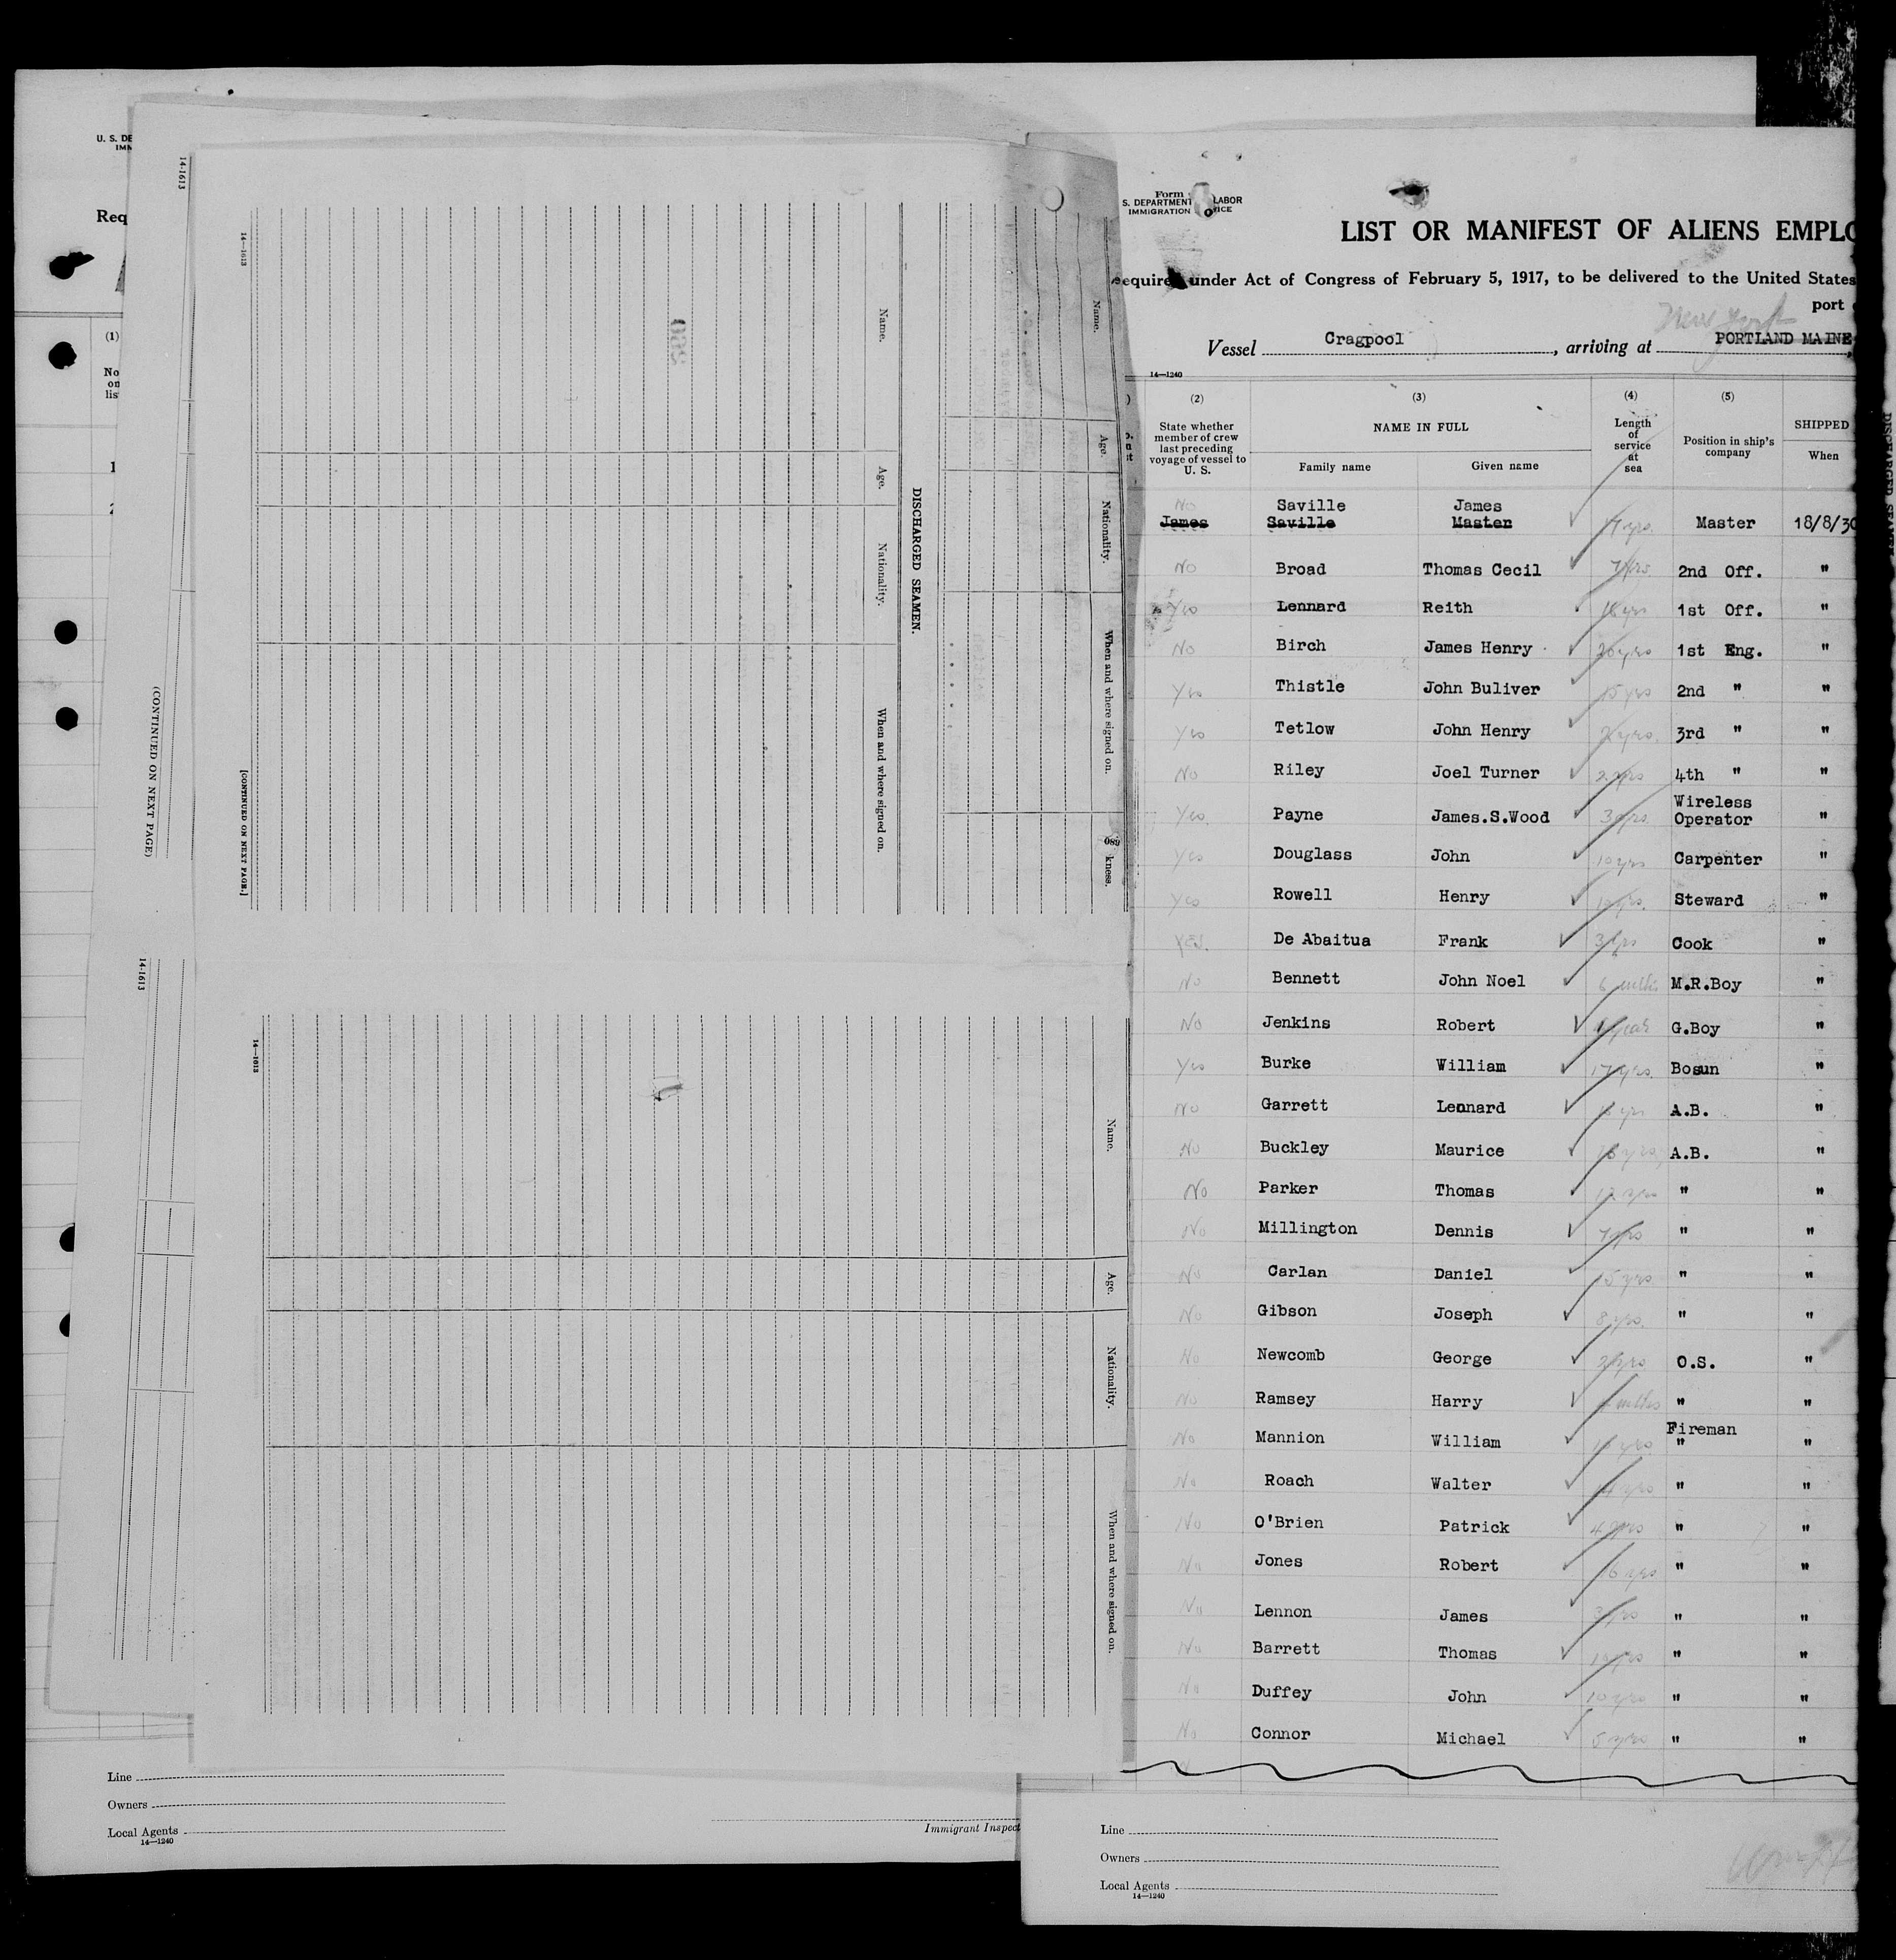 U. S. DE
IMM
14-1613
Req
(1)
No
on
lis
1
2
(CONTINUED ON NEXT PAGE)
14-1613
Line
Owners
Local Agents
14—1240
Immigrant Inspect
14—1613
Name.
Age.
Nationality.
When and where signed on.
[CONTINUED ON NEXT PAGE.]
DISCHARGED SEAMEN.
Name.
Age.
Nationality.
When and where signed on.
kness.
14—1613
Name.
Age.
Nationality.
When and where signed on.
Form
S. DEPARTMENT LABOR
IMMIGRATION
LIST OR MANIFEST OF ALIENS EMPLO
equired under Act of Congress of February 5, 1917, to be delivered to the United States
port
New York
Vessel Cragpool, arriving at PORTLAND MAINE
14—1240
(2) (3) (4) (5)
State whether member of crew last preceding voyage of vessel to U. S.
NAME IN FULL
Family name Given name
Length of service at sea
Position in ship's company
SHIPPED
When
No Saville James
James Saville Master Master 18/8/30
No Broad Thomas Cecil 2nd Off. "
Yes Lennard Reith 18 yrs 1st Off. "
No Birch James Henry 20 yrs 1st Eng. "
Yes Thistle John Buliver 15 yrs 2nd " "
Yes Tetlow John Henry 3rd " "
No Riley Joel Turner 2 yrs 4th " "
Yes Payne James.S.Wood Wireless Operator "
Yes Douglass John 10 yrs Carpenter "
Yes Rowell Henry Steward "
Yes. De Abaitua Frank Cook "
No Bennett John Noel 6 mths M.R.Boy "
No Jenkins Robert 1 year G.Boy "
Yes Burke William 17 yrs. Bosun "
No Garrett Lennard A.B. "
No Buckley Maurice A.B. "
No Parker Thomas 12 yrs " "
No Millington Dennis 7 yrs " "
No Carlan Daniel 15 yrs. " "
No Gibson Joseph 8 yrs. " "
No Newcomb George O.S. "
No Ramsey Harry " "
Fireman
No Mannion William " "
No Roach Walter " "
No O'Brien Patrick " "
No Jones Robert 16 yrs " "
No Lennon James " "
No Barrett Thomas " "
No Duffey John 10 yrs " "
No Connor Michael 5 yrs " "
Line
Owners
Local Agents
14—1240